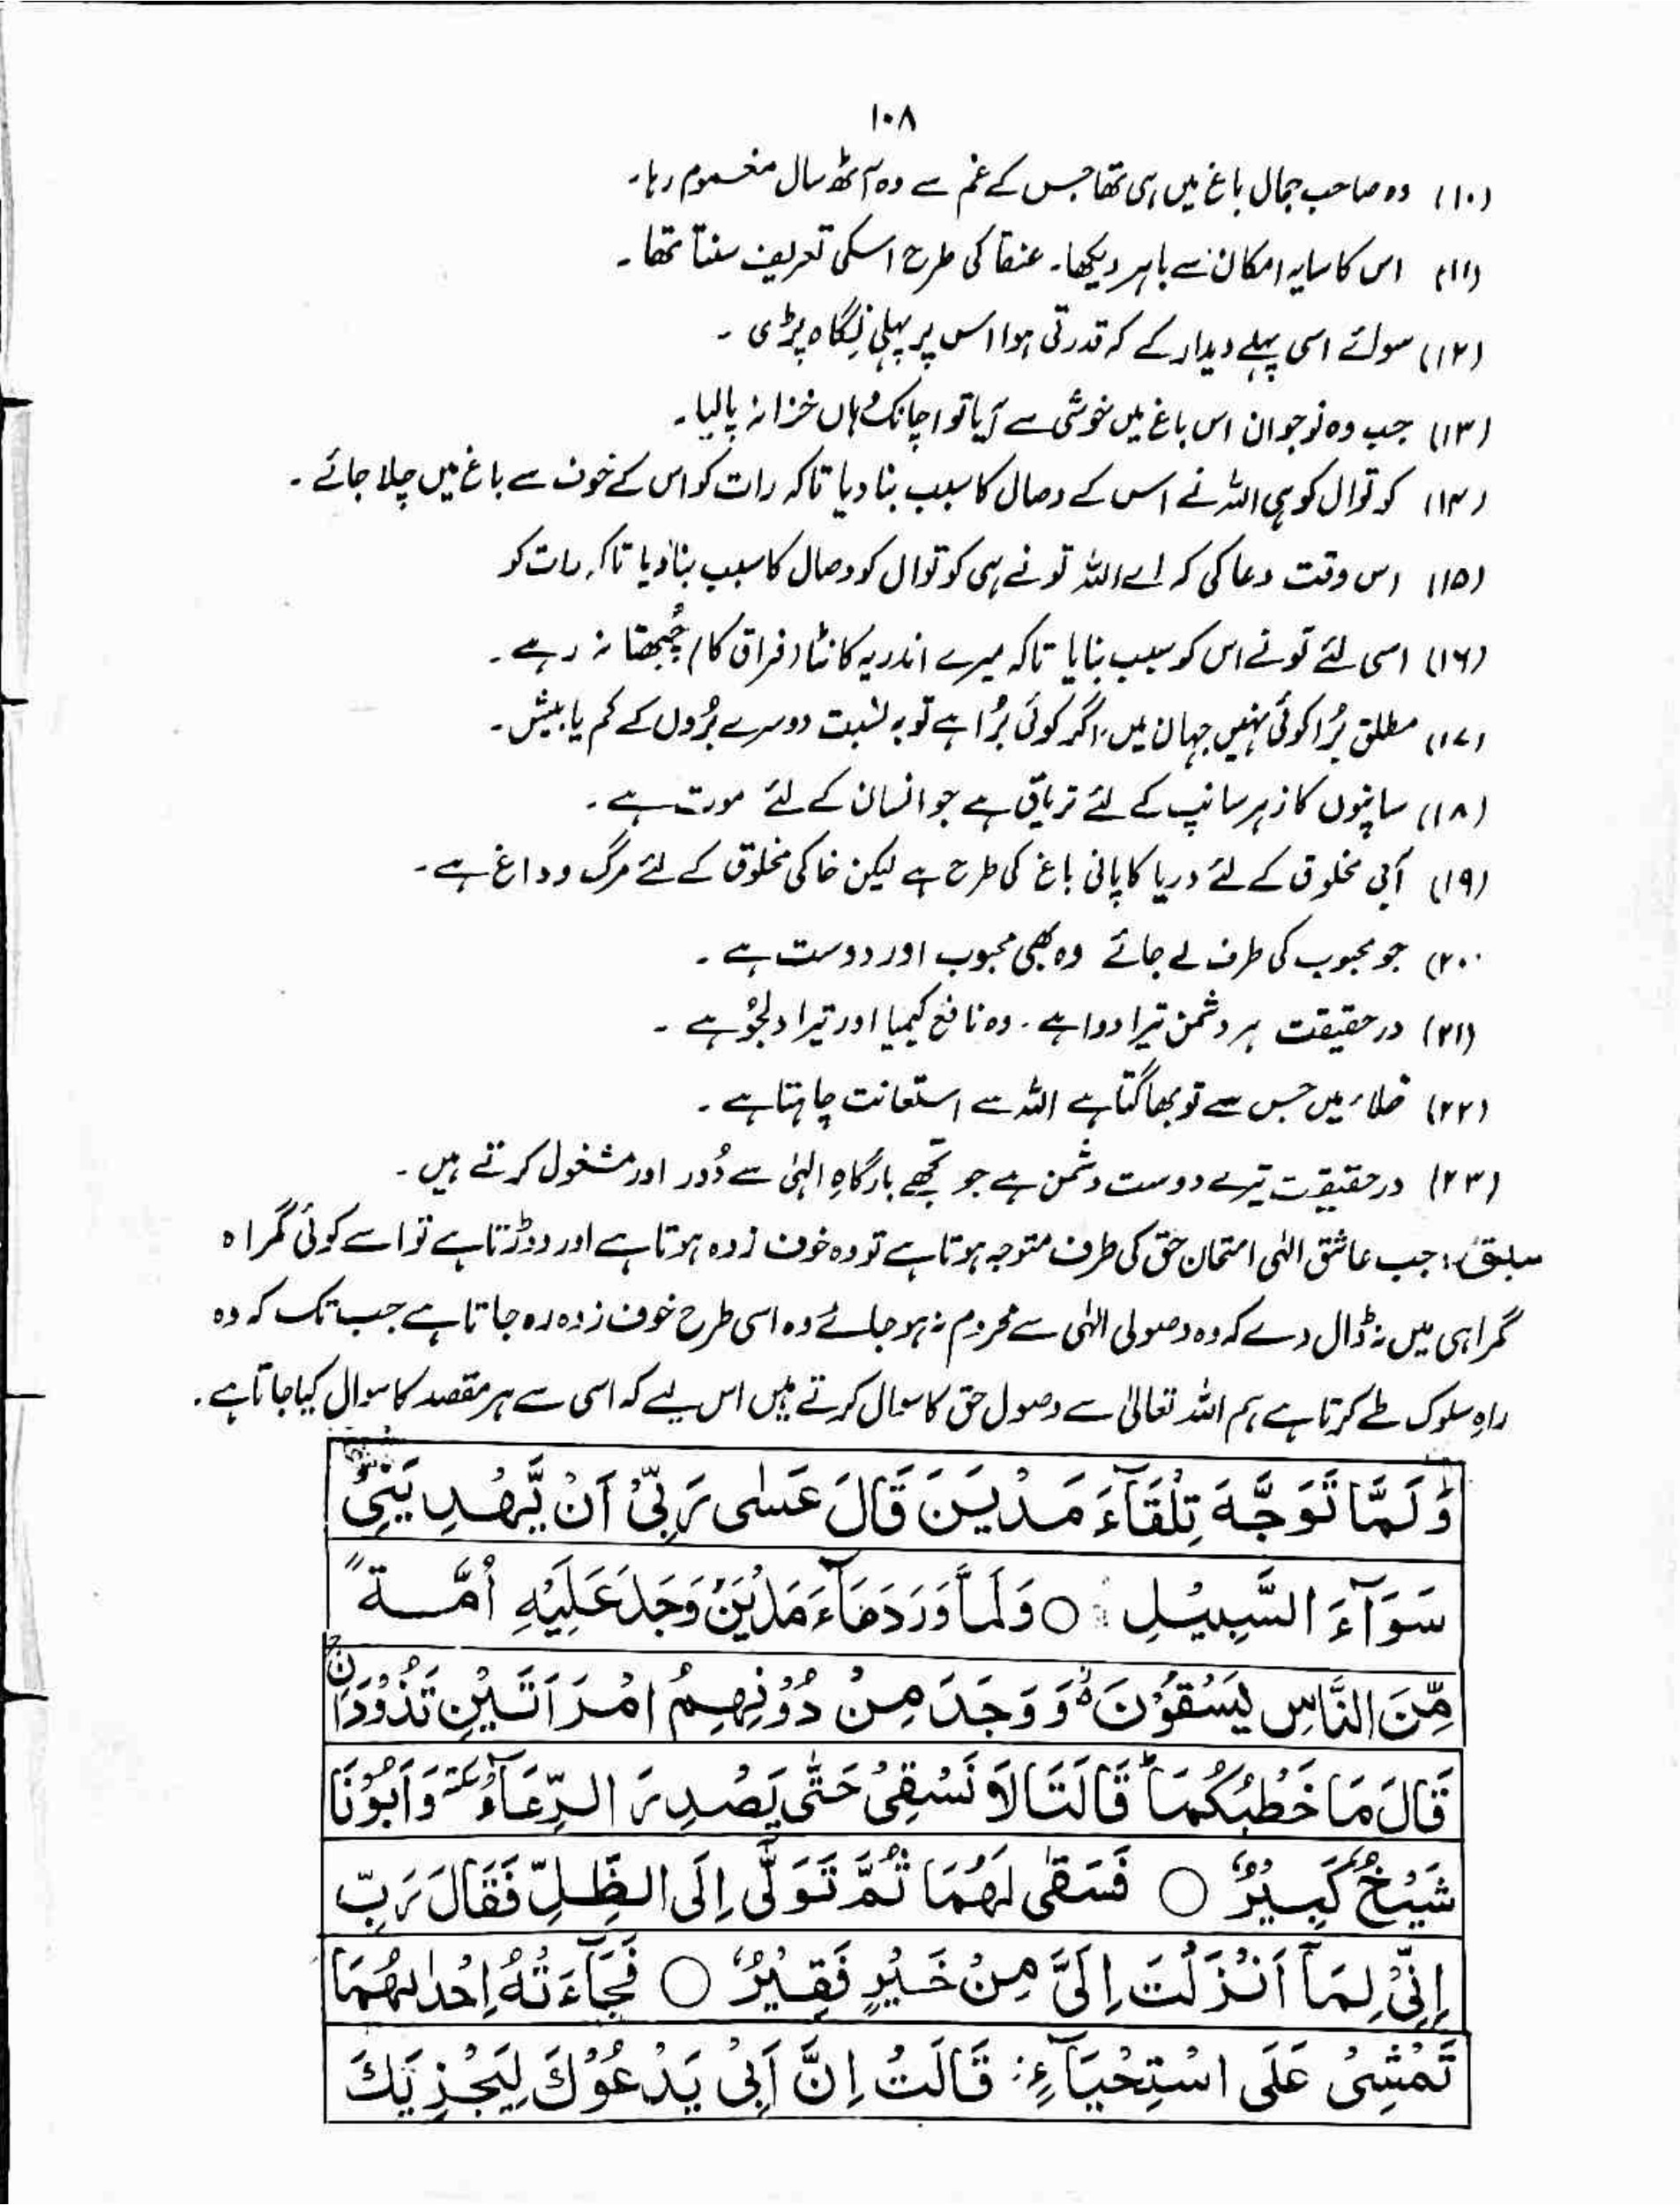 ۱۰۸
(۱۰) وہ صاحب جمال باغ میں ہی تھا جس کے غم سے وہ آٹھ سال مغموم رہا۔
(۱۱) اس کا سایہ امکان سے باہر دیکھا۔ عنقا کی طرح اسکی تعریف سنتا تھا۔
(۱۲) سوائے اسی پہلے دیدار کے کہ قدرتی ہوا اس پر پہلی نگاہ پڑی ۔
(۱۳) جب وہ نوجوان اس باغ میں خوشی سے آیا تو اچانک وہاں خزانہ پالیا۔
(۱۴) کوتوال کو ہی اللہ نے اس کے وصال کا سبب بنا دیا تاکہ رات کو اس کے خوف سے باغ میں چلا جائے ۔
(۱۵) اس وقت دعا کی کہ اے اللہ تو نے ہی کوتوال کو وصال کا سبب بنا دیا تاکہ رات کو
(۱۶) اسی لئے تو نے اس کو سبب بنایا تاکہ میرے اندر یہ کانٹا (فراق کا) چُبھتا نہ رہے ۔
(۱۷) مطلق بُرا کوئی نہیں جہان میں، اگر کوئی بُرا ہے تو بہ نسبت دوسرے بُروں کے کم یا بیش۔
(۱۸) سانپوں کا زہر سانپ کے لئے تریاق ہے جو انسان کے لئے موت ہے ۔
(۱۹) آبی مخلوق کے لئے دریا کا پانی باغ کی طرح ہے لیکن خاکی مخلوق کے لئے مرگ و داغ ہے ۔
(۲۰) جو محبوب کی طرف لے جائے وہ بھی محبوب اور دوست ہے ۔
(۲۱) درحقیقت ہر دشمن تیرا دوا ہے ۔ وہ نافع کیمیا اور تیرا دلجُو ہے ۔
(۲۲) خلاء میں جس سے تو بھاگتا ہے اللہ سے استعانت چاہتا ہے ۔
(۲۳) درحقیقت تیرے دوست دشمن ہے جو تجھے بارگاہِ الٰہی سے دُور اور مشغول کرتے ہیں ۔
سبق : جب عاشق الٰہی امتحان حق کی طرف متوجہ ہوتا ہے تو وہ خوف زدہ ہوتا ہے اور دوڑتا ہے تو اسے کوئی گمراہ
گمراہی میں نہ ڈال دے کہ وہ وصولی الٰہی سے محروم نہ ہو جائے وہ اسی طرح خوف زدہ رہ جاتا ہے جب تک کہ وہ
راہِ سلوک طے کرتا ہے ہم اللہ تعالیٰ سے وصول حق کا سوال کرتے ہیں اس لیے کہ اسی سے ہر مقصد کا سوال کیا جاتا ہے ۔
وَلَمَّا تَوَجَّهَ تِلْقَآءَ مَدْيَنَ قَالَ عَسٰى رَبِّىْٓ اَنْ يَّهْدِيَنِىْ
سَوَآءَ السَّبِيْلِ ○ وَلَمَّا وَرَدَ مَآءَ مَدْيَنَ وَجَدَ عَلَيْهِ اُمَّةً
مِّنَ النَّاسِ يَسْقُوْنَ ۬ وَوَجَدَ مِنْ دُوْنِهِمُ امْرَاَتَيْنِ تَذُوْدٰنِ ۚ
قَالَ مَا خَطْبُكُمَا ؕ قَالَتَا لَا نَسْقِىْ حَتّٰى يُصْدِرَ الرِّعَآءُ وَاَبُوْنَا
شَيْخٌ كَبِيْرٌ ○ فَسَقٰى لَهُمَا ثُمَّ تَوَلّٰٓى اِلَى الظِّلِّ فَقَالَ رَبِّ
اِنِّىْ لِمَآ اَنْزَلْتَ اِلَىَّ مِنْ خَيْرٍ فَقِيْرٌ ○ فَجَآءَتْهُ اِحْدٰىهُمَا
تَمْشِىْ عَلَى اسْتِحْيَآءٍ ؗ قَالَتْ اِنَّ اَبِىْ يَدْعُوْكَ لِيَجْزِيَكَ